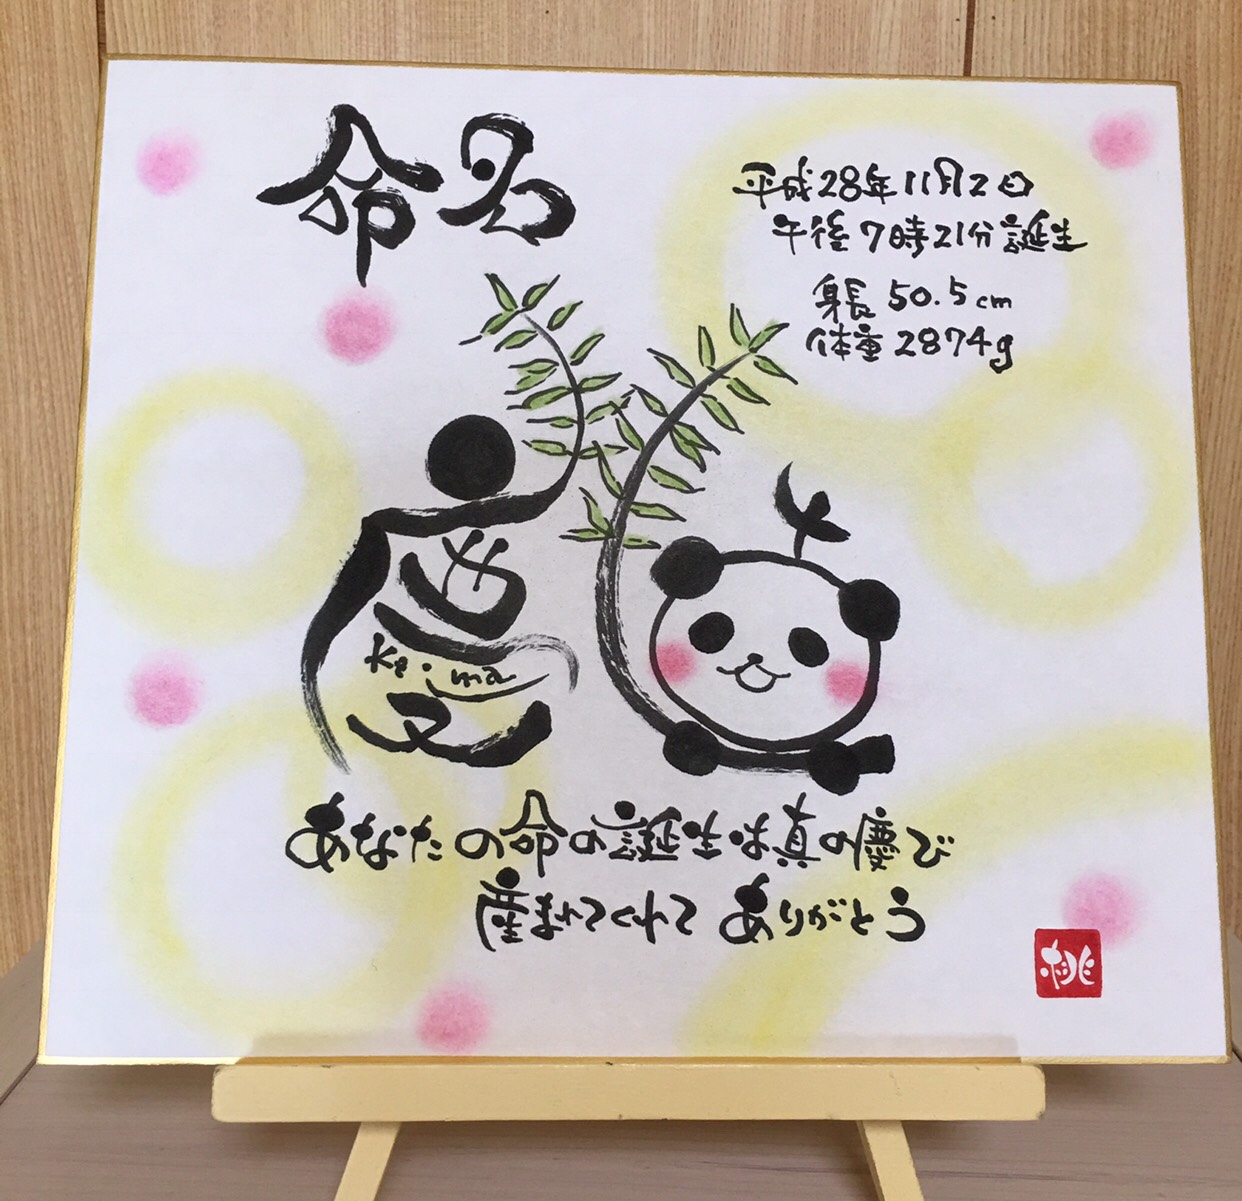 命名
平成28年11月2日
午後7時21分誕生
身長 50.5cm
体重 2874g
慶
Kei ma
あなたの命の誕生は真の慶び
産まれてくれて ありがとう
桃